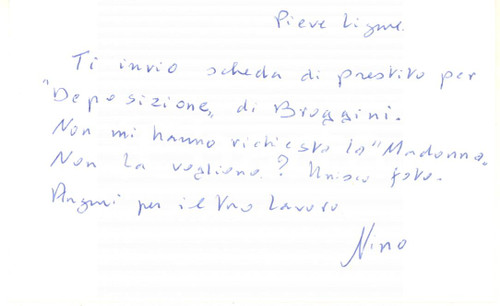 Pieve Ligure.
Ti invio scheda di prestito per
"Deposizione" di Broggini.
Non mi hanno richiesto la "Madonna"
Non la vogliono? Unisco foto.
Auguri per il tuo lavoro
Nino